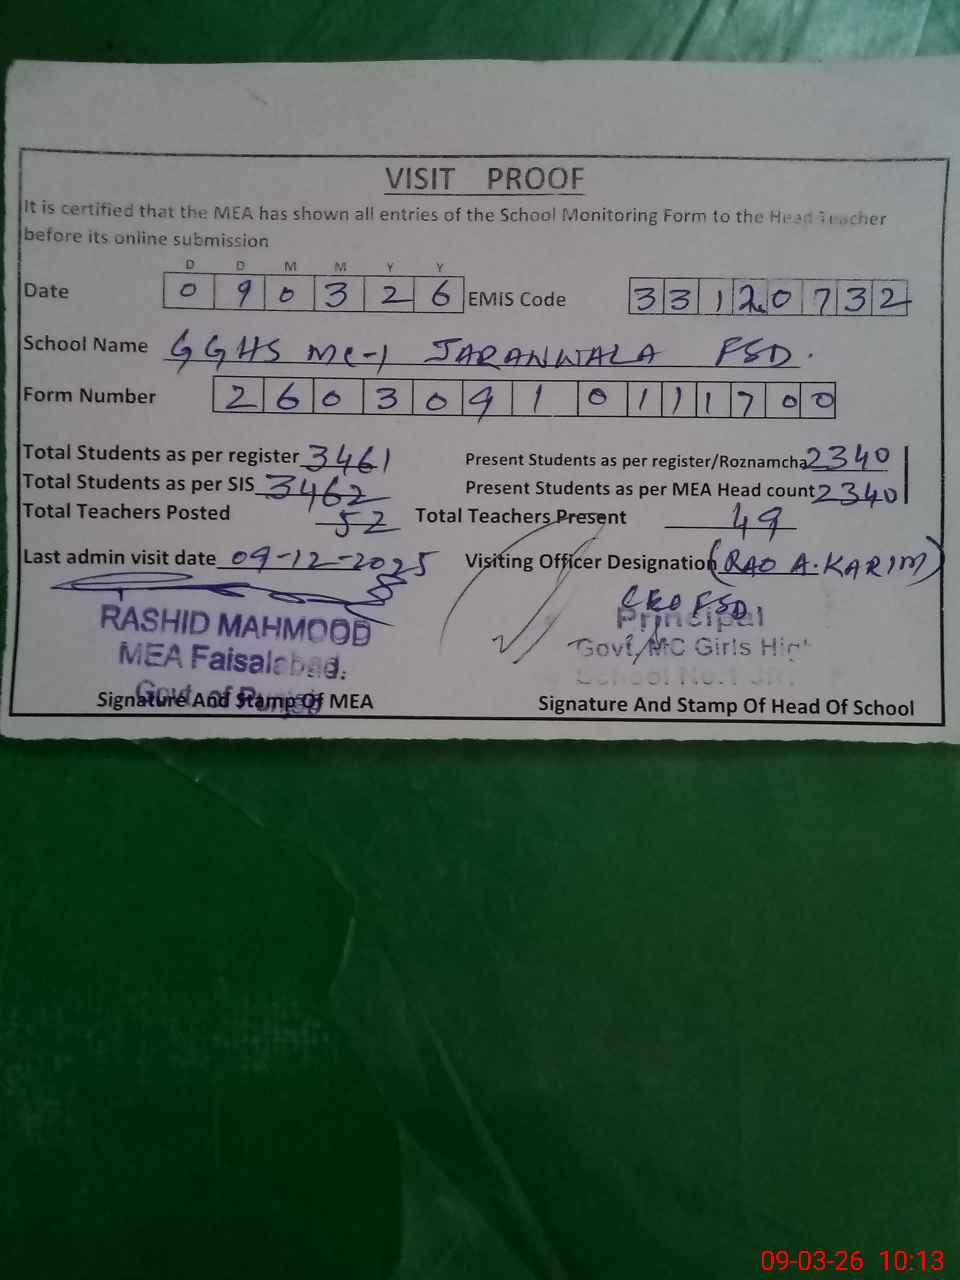 VISIT PROOF
It is certified that the MEA has shown all entries of the School Monitoring Form to the Head Teacher
before its online submission
D D M M Y Y
Date 0 9 0 3 2 6 EMIS Code 3 3 1 2 0 7 3 2
School Name GGHS MC-1 JARANWALA FSD.
Form Number 2 6 0 3 0 9 1 0 1 1 1 7 0 0
Total Students as per register 3461 Present Students as per register/Roznamcha 2340
Total Students as per SIS 3462 Present Students as per MEA Head count 2340
Total Teachers Posted 52 Total Teachers Present 49
Last admin visit date 09-12-2025 Visiting Officer Designation (RAO A. KARIM)
CEO FSD
RASHID MAHMOOD Principal
MEA Faisalabad. Govt. MC Girls High
Govt. of Punjab School No.1
Signature And Stamp Of MEA Signature And Stamp Of Head Of School
09-03-26 10:13